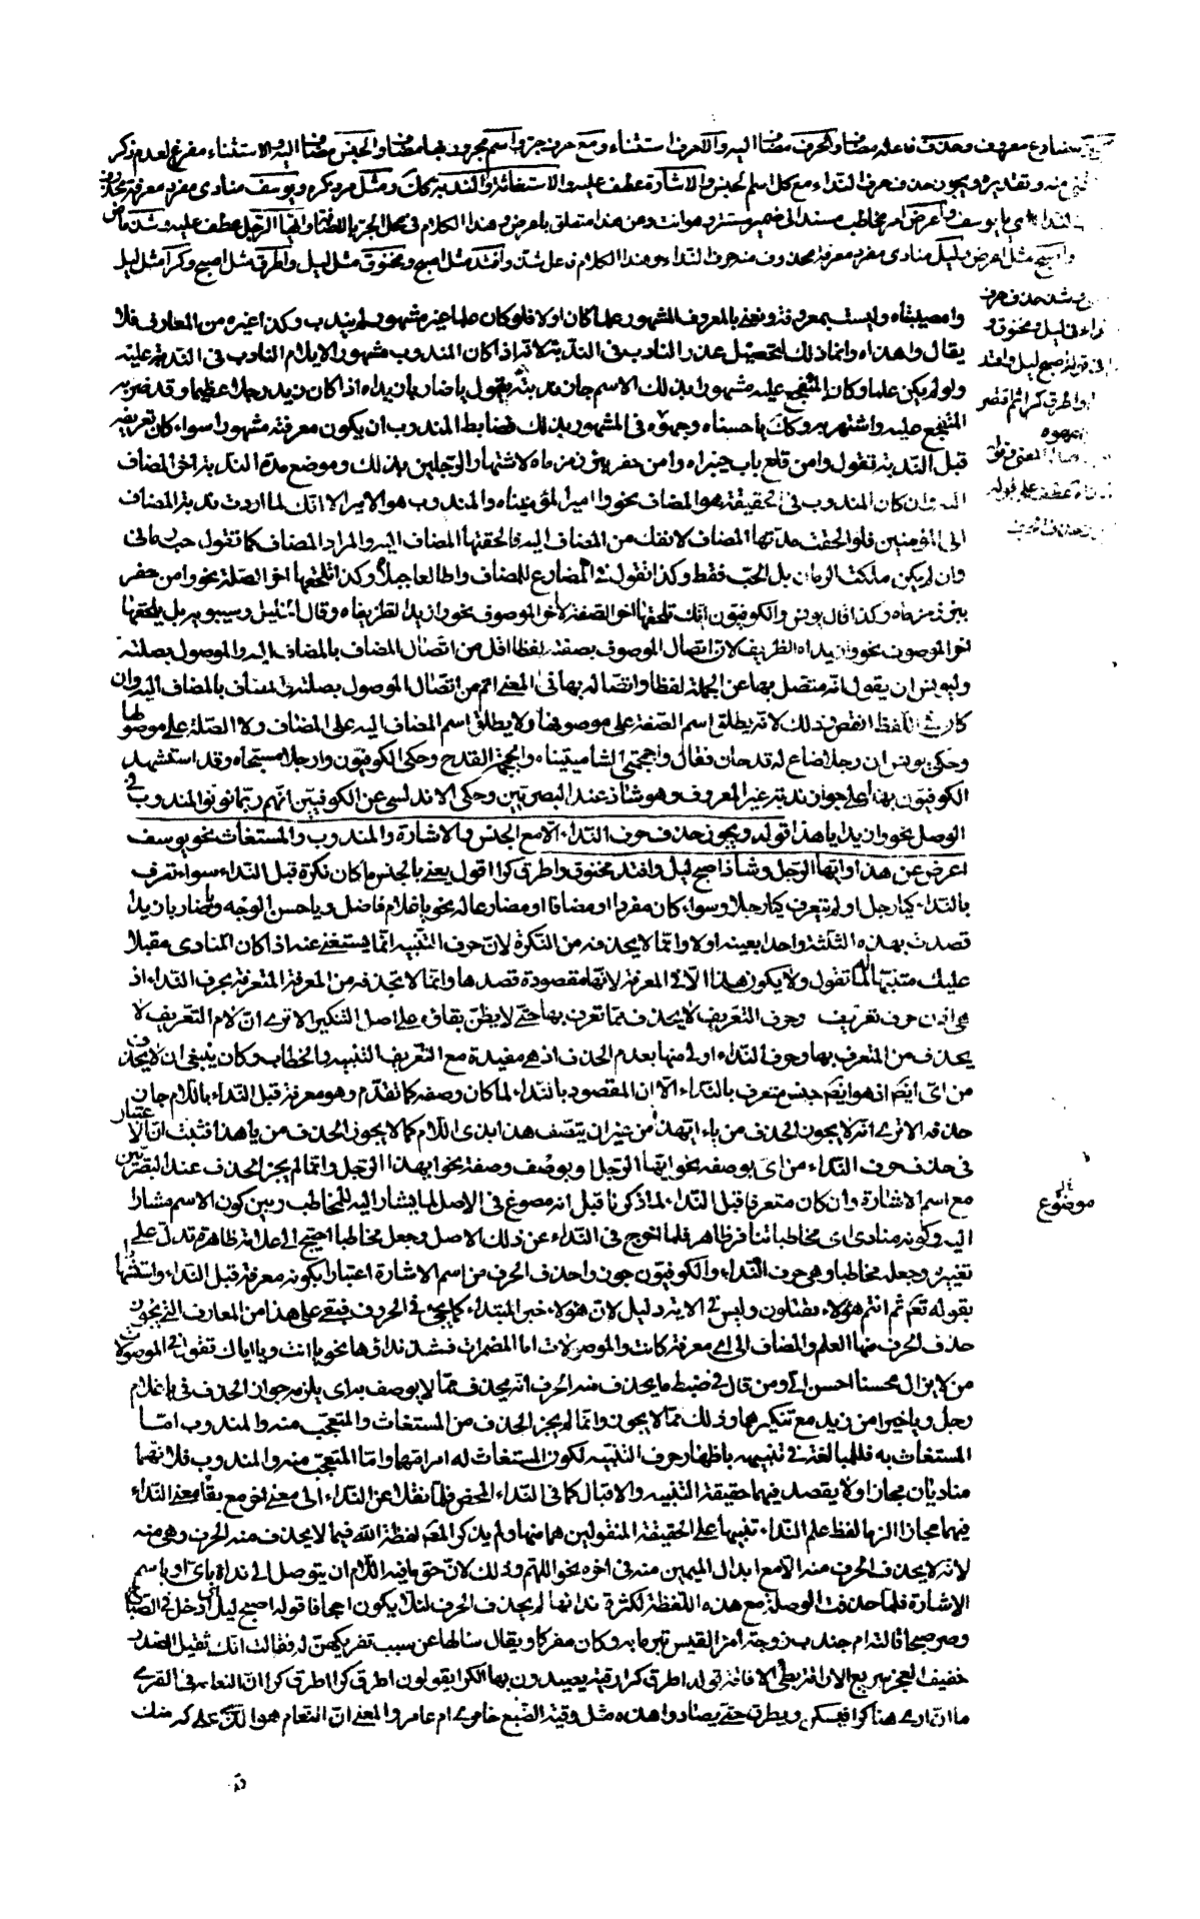 مضارع معروف وحذف فاعله مضاف والحرف مضاف اليه والا حرف استثناء ومع حرف جر واسم مجرور بها مضاف والجنس مضاف اليه والاستثناء مفرغ لعدم ذكر
منه وتقديره ويجوز حذف حرف النداء مع كل اسم الجنس والاشارة عطف عليه والاستغاثة والندبة كك ومثل مر ذكره ويوسف منادى مفرد معرفة محذوف
النداء اى يا يوسف واعرض امر مخاطب مسند الى ضمير مستتر وهو انت ومن هذا متعلق باعرض وهذا الكلام فى محل الجر وايها الرجل عطف عليه وشذ ماض
واصبح مثل اعرض وليل منادى مفرد معرفة محذوف منه حرف النداء وهذا الكلام فاعل شذ وافتد مثل اصبح ومخنوق مثل ليل واطرق مثل اصبح وكرا مثل ليل
وا مصيبتاه وليست بمعرفة ونعنى بالمعروف المشهور علما كان اولا فلو كان علما غير مشهور لم يندب وكذا غيره من المعارف فلا
يقال وا هذاه وانما ذلك لتحصيل عذر النادب فى الندبة لانه اذا كان المندوب مشهورا لا يلام النادب فى الندبة عليه
ولو لم يكن علما وكان المتفجع عليه مشهورا بذلك الاسم جاز ندبته يقول يا ضاربا زيداه اذا كان زيد رجلا عظيما وقد ضربه
المتفجع عليه واشتهر به وكك يا حسناه وجهوه فى المشهور بذلك فضابط المندوب ان يكون معرفته مشهورا سواء كان تعريفه
قبل الندبة تقول وا من قلع باب خيبراه وا من حفر بئر زمزماه لاشتهار الرجلين بذلك وموضع مدة الندبة اخر المضاف
اليه وان كان المندوب فى الحقيقة هو المضاف نحو وا امير المؤمنيناه والمندوب هو الامير الا انك لما اردت ندبة المضاف
الى المؤمنين فلو الحقت مدتها المضاف لانفك من المضاف اليه فالحقتها المضاف اليه والمراد المضاف كما تقول حب رمانى
وان لم يكن ملكت الرمان بل الحب فقط وكذا تقول فى المضارع للمضاف وا طالعا جبلاه وكذا تلحقها اخر الصلة نحو وا من حفر
بئر زمزماه وكذا قال يونس والكوفيون انك تلحقها اخر الصفة لا اخر الموصوف نحو وا زيد الظريفاه وقال الخليل وسيبويه بل يلحقها
اخر الموصوف نحو وا زيداه الظريف لان اتصال الموصوف بصفته لفظا اقل من اتصال المضاف بالمضاف اليه والموصول بصلته
وليونس ان يقول انه متصل بها عن الجملة لفظا واتصاله بها فى المعنى اتم من اتصال الموصول بصلته والمضاف بالمضاف اليه وان
كان فى اللفظ انقص وذلك لانه يطلق اسم الصفة على موصوفها ولا يطلق اسم المضاف اليه على المضاف ولا الصلة على موصولها
وحكى يونس ان رجلا ضاع له قدحان فقال وا جمجمتى الشاميتيناه والجمجمة القدح وحكى الكوفيون وا رجلا مسجاه وقد استشهد
الكوفيون بهذا على جواز ندبة غير المعروف وهو شاذ عند البصريين وحكى الاندلسى عن الكوفيين انهم ربما نونوا المندوب فى
الوصل نحو وا زيدا يا هذا قوله ويجوز حذف حرف النداء الا مع الجنس والاشارة والمندوب والمستغاث نحو يوسف
اعرض عن هذا وايها الرجل وشاذ اصبح ليل وافتد مخنوق واطرق كرا اقول يعنى بالجنس ما كان نكرة قبل النداء سواء تعرف
بالنداء كيا رجل او لم يتعرف كيا رجلا وسواء كان مفردا او مضافا او مضارعا له نحو يا غلام فاضل ويا حسن الوجه ويا ضاربا زيدا
قصدت بهذه الثلثة واحدا بعينه اولا وانما لا يحذف من النكرة لان حرف التنبيه انما يستغنى عنه اذا كان المنادى مقبلا
عليك متنبها لما تقول ولا يكون هذا الا فى المعرفة لانها مقصودة قصدها وانما لا تحذف من المعرفة المتعرفة بحرف النداء اذ
هى اذن حرف تعريف وحرف التعريف لا يحذف مما تعرف بها حتى لا يظن بقاؤه على اصل التنكير الا ترى ان لام التعريف لا
يحذف من المتعرف بها وحرف النداء اولى منها بعدم الحذف اذ هى مفيدة مع التعريف التنبيه والخطاب وكان ينبغى ان لا يحذف
من اى ايضا اذ هو ايضا جنس متعرف بالنداء الا ان المقصود بالنداء لما كان وصفه كما تقدم وهو معرفة قبل النداء باللام جاز
حذفه الا ترى انه لا يجوز الحذف من يا ايهذا من غير ان يتصف هذا بذى اللام كما لا يجوز الحذف من يا هذا فثبت انه لا اعتبار
فى حذف حرف النداء من اى بوصفه نحو ايها الرجل او بوصف وصفه نحو ايهذا الرجل وانما لم يجز الحذف عند البصريين
مع اسم الاشارة وان كان متعرفا قبل النداء لما ذكرنا قبل انه موضوع فى الاصل لما يشار اليه للمخاطب وبين كون الاسم مشارا
اليه وكونه منادى اى مخاطبا تنافر ظاهر فلما اخرج فى النداء عن ذلك الاصل وجعل مخاطبا احتيج الى علامة ظاهرة تدل على
تغييره وجعله مخاطبا وهى حرف النداء والكوفيون جوزوا حذف الحرف من اسم الاشارة اعتبارا بكونه معرفة قبل النداء واستشهادا
بقوله تعم ثم انتم هؤلاء تقتلون وليس فى الاية دليل لان هؤلاء خبر المبتداء كما يجئ فى الحروف فبقى على هذا من المعارف التى يجوز
حذف الحرف منها العلم والمضاف الى اى معرفة كانت والموصولات اما المضمرات فشذ نداؤها نحو يا انت ويا اياك تقول فى الموصولات
من لا يزال محسنا احسن الى ومن قال فى ضبط ما يحذف منه الحرف انه يحذف مما لا يوصف به اى يلزمه جواز الحذف فى يا غلام
رجل ويا خيرا من زيد مع تنكيرهما وذلك مما لا يجوز وانما لم يجز الحذف من المستغاث والمتعجب منه والمندوب اما
المستغاث به فللمبالغة فى تنبيهه باظهار حرف التنبيه لكون المستغاث له امرا مهما واما المتعجب منه والمندوب فلانهما
مناديان مجازا ولا يقصد فيهما حقيقة التنبيه والاقبال كما فى النداء المحض فلما نقلا عن النداء الى معنى اخر مع بقاء معنى النداء
فيهما مجازا الزما لفظ علم النداء تنبيها على الحقيقة المنقولين هما منها ولم يذكر المصنف لفظة الله فيما لا يحذف منه الحرف وهى منه
لانه لا يحذف الحرف منه الا مع ابدال الميمين منه فى اخره نحو اللهم وذلك لان حق ما فيه اللام ان يتوصل الى ندائه باى او باسم
الاشارة فلما حذفت الوصلة مع هذه اللفظة لكثرة ندائها لم يحذف الحرف لئلا يكون اجحافا قوله اصبح ليل اى ادخل فى الصباح
وصر صبحا قالته ام جندب زوجة امرئ القيس تبرما به وكان مفركا ويقال سالها عن سبب تفريكهن له فقالت انك ثقيل الصدر
خفيف العجز سريع الاراقة بطئ الافاقة قوله اطرق كرا رقية يصيدون بها الكرا يقولون اطرق كرا اطرق كرا ان النعام فى القرى
ما ان ارى هنا كرا فيسكن ويطرق حتى يصاد وهذه مثل رقية الضبع خامرى ام عامر والمعنى ان النعام هو الذى على كره
شذ حذف حرف
نداء فى ليل ومخنوق و
اصبح ليل وافتد
واطرق كرا ثم قصر
موضوع